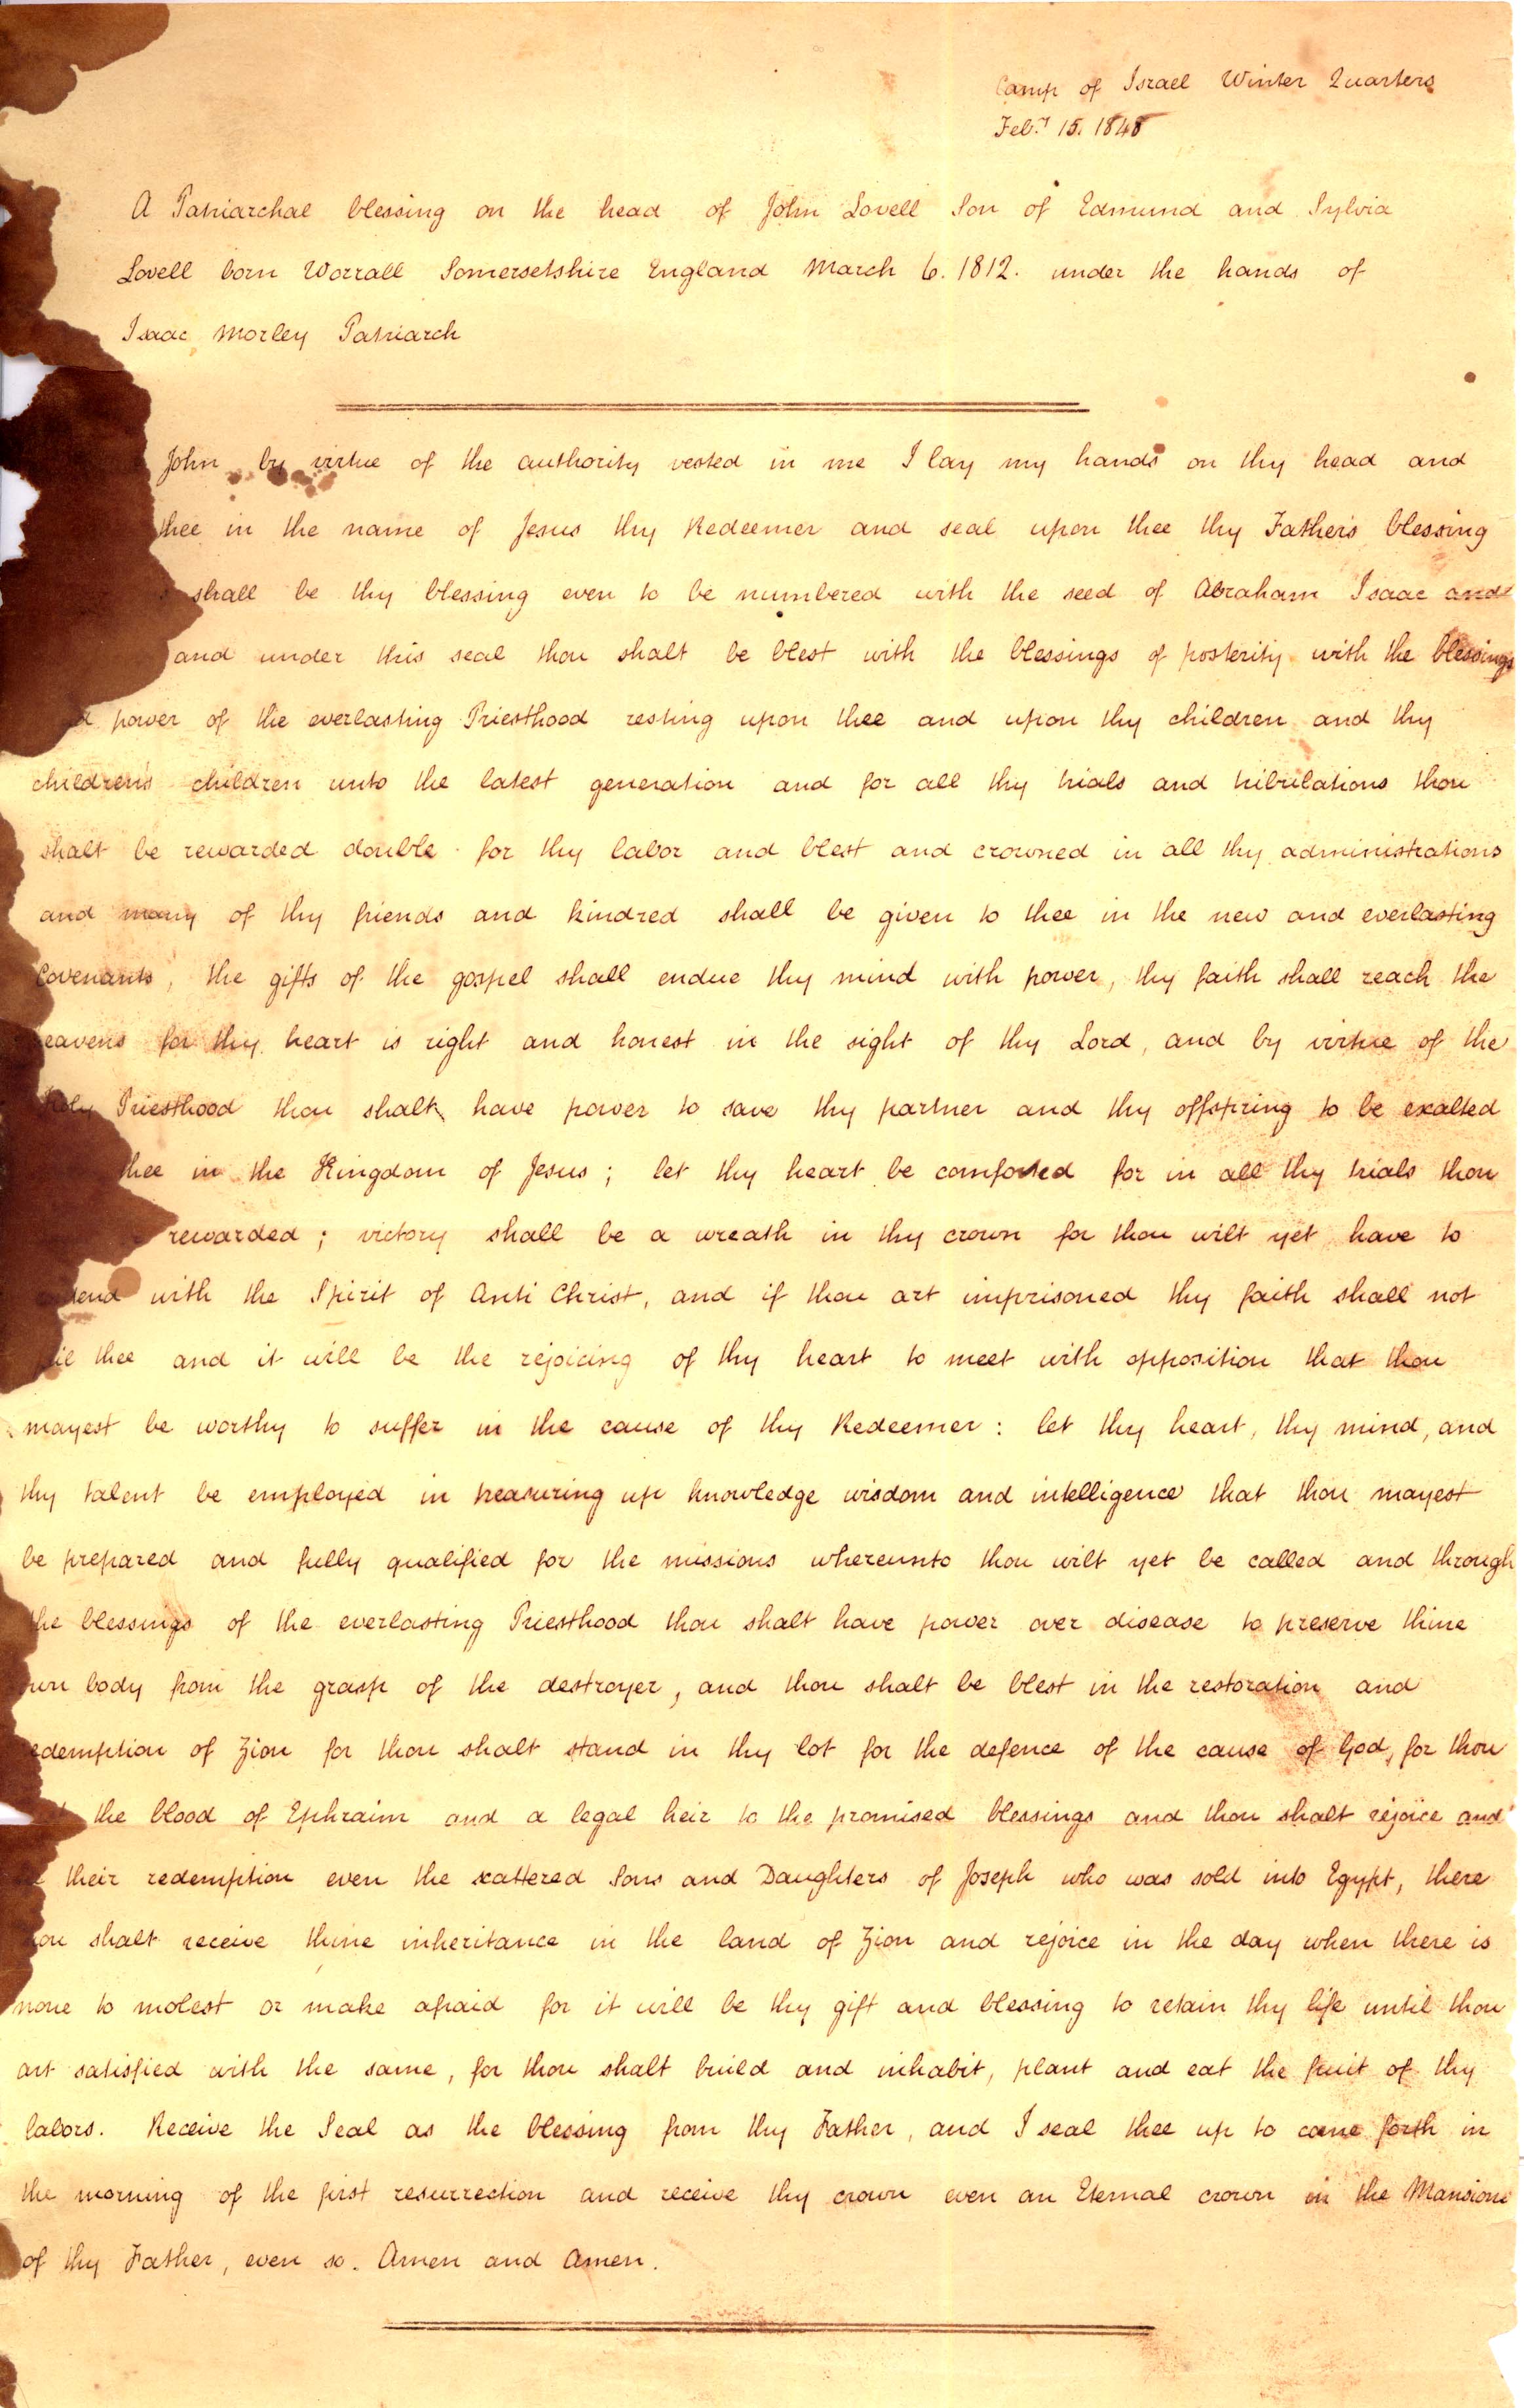 Camp of Israel Winter Quarters
Feb.y 15. 1848
A Patriarchal blessing on the head of John Lovell Son of Edmund and Sylvia
Lovell born Worrall Somersetshire England March 6. 1812. under the hands of
Isaac Morley Patriarch
John by virtue of the authority vested in me I lay my hands on thy head and
thee in the name of Jesus thy Redeemer and seal upon thee thy Father's blessing
shall be thy blessing even to be numbered with the seed of Abraham Isaac and
and under this seal thou shalt be blest with the blessings of posterity with the blessings
power of the everlasting Priesthood resting upon thee and upon thy children and thy
children's children unto the latest generation and for all thy trials and tribulations thou
shalt be rewarded double for thy labor and blest and crowned in all thy administrations
and many of thy friends and kindred shall be given to thee in the new and everlasting
Covenants, the gifts of the gospel shall endue thy mind with power, thy faith shall reach the
eavens for thy heart is right and honest in the sight of thy Lord, and by virtue of the
Holy Priesthood thou shalt have power to save thy partner and thy offspring to be exalted
thee in the Kingdom of Jesus; let thy heart be comforted for in all thy trials thou
rewarded; victory shall be a wreath in thy crown for thou wilt yet have to
tend with the Spirit of Anti Christ, and if thou art imprisoned thy faith shall not
ail thee and it will be the rejoicing of thy heart to meet with opposition that thou
mayest be worthy to suffer in the cause of thy Redeemer: let thy heart, thy mind, and
thy talent be employed in treasuring up knowledge wisdom and intelligence that thou mayest
be prepared and fully qualified for the missions whereunto thou wilt yet be called and through
the blessings of the everlasting Priesthood thou shalt have power over disease to preserve thine
wn body from the grasp of the destroyer, and thou shalt be blest in the restoration and
edemption of Zion for thou shalt stand in thy lot for the defence of the cause of God, for thou
the blood of Ephraim and a legal heir to the promised blessings and thou shalt rejoice and
their redemption even the scattered Sons and Daughters of Joseph who was sold into Egypt, there
ou shalt receive thine inheritance in the land of Zion and rejoice in the day when there is
none to molest or make afraid for it will be thy gift and blessing to retain thy life until thou
art satisfied with the same, for thou shalt build and inhabit, plant and eat the fruit of thy
labors. Receive the Seal as the blessing from thy Father, and I seal thee up to come forth in
the morning of the first resurrection and receive thy crown even an Eternal crown in the Mansions
of thy Father, even so. Amen and Amen.